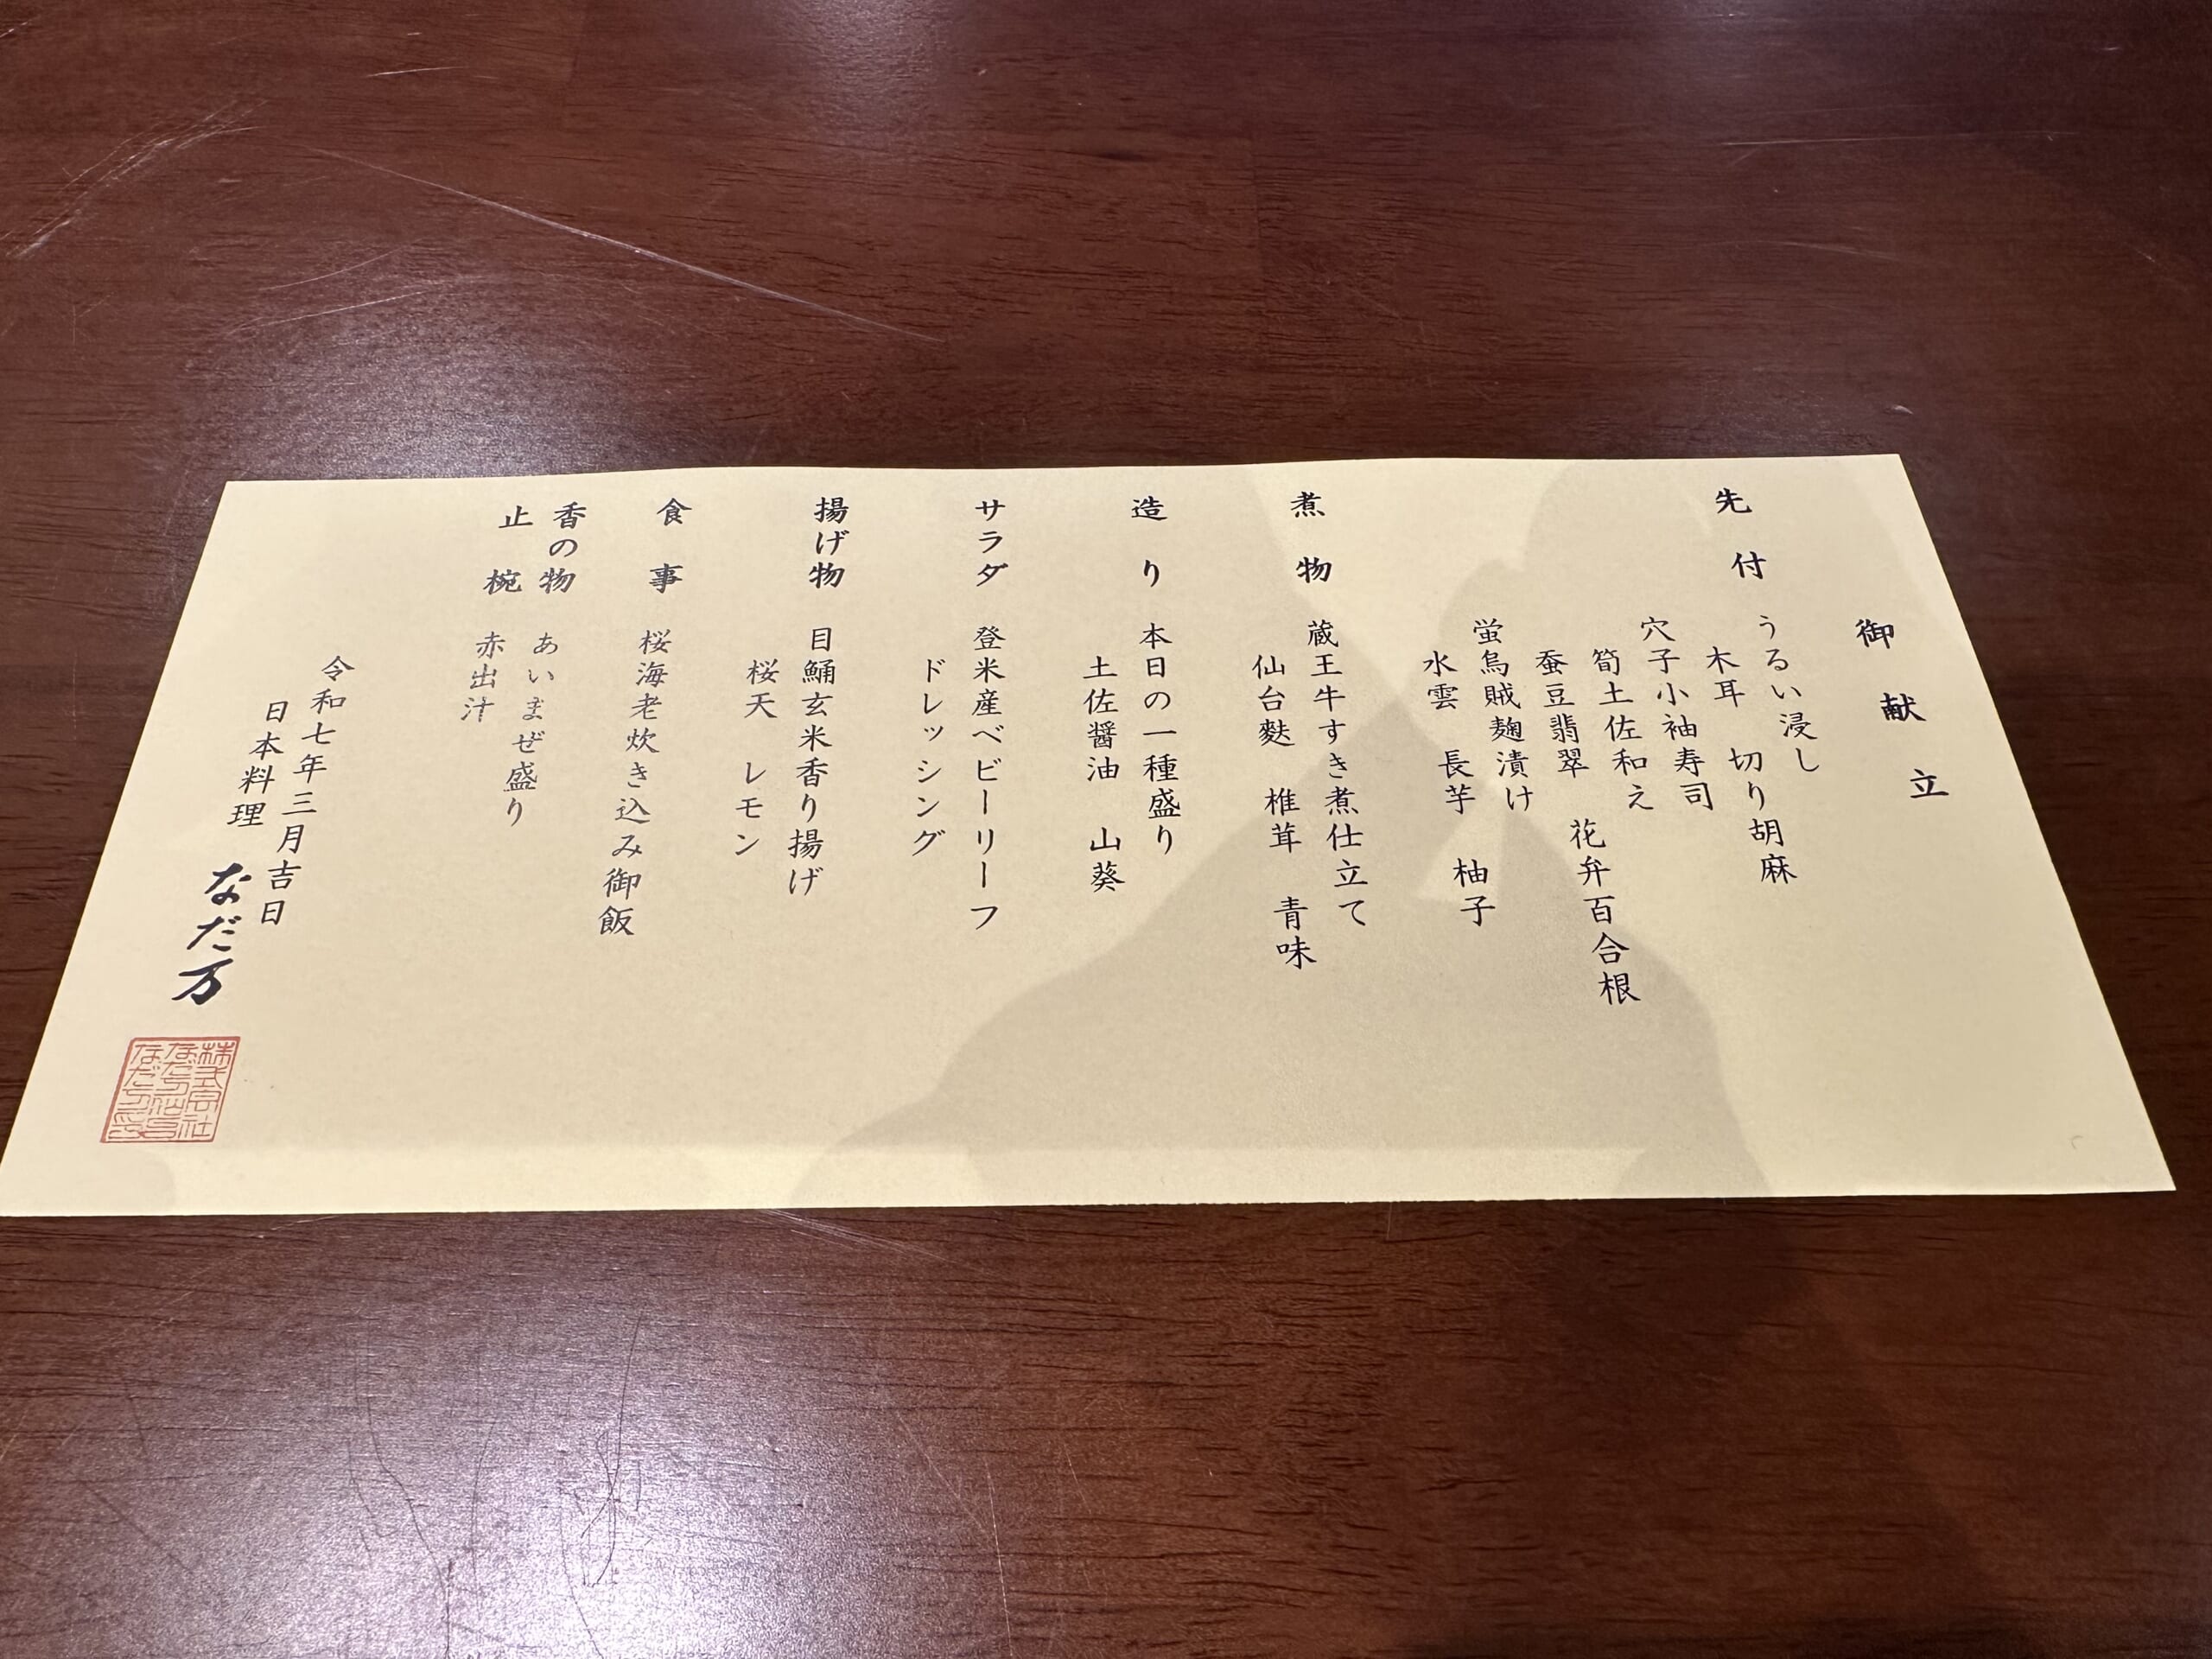 御献立
先付 うるい浸し
木耳 切り胡麻
穴子小袖寿司
筍土佐和え
蚕豆翡翠 花弁百合根
蛍烏賊麹漬け
水雲 長芋 柚子
煮物 蔵王牛すき煮仕立て
仙台麩 椎茸 青味
造り 本日の一種盛り
土佐醤油 山葵
サラダ 登米産ベビーリーフ
ドレッシング
揚げ物 目鯒玄米香り揚げ
桜天 レモン
食事 桜海老炊き込み御飯
香の物 あいまぜ盛り
止椀 赤出汁
令和七年三月吉日
日本料理 なだ万
株式会社